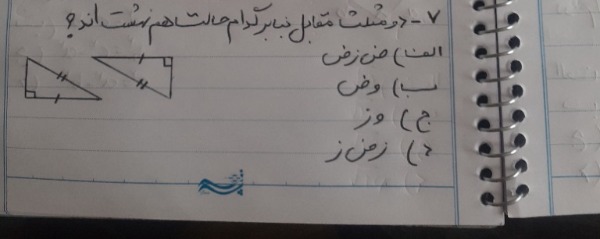 ۷- دو مثلث مقابل بنا بر کدام حالت هم نهشت اند؟
الف) ض ز ض
ب) و ض
ج) و ز
د) ز ض ز